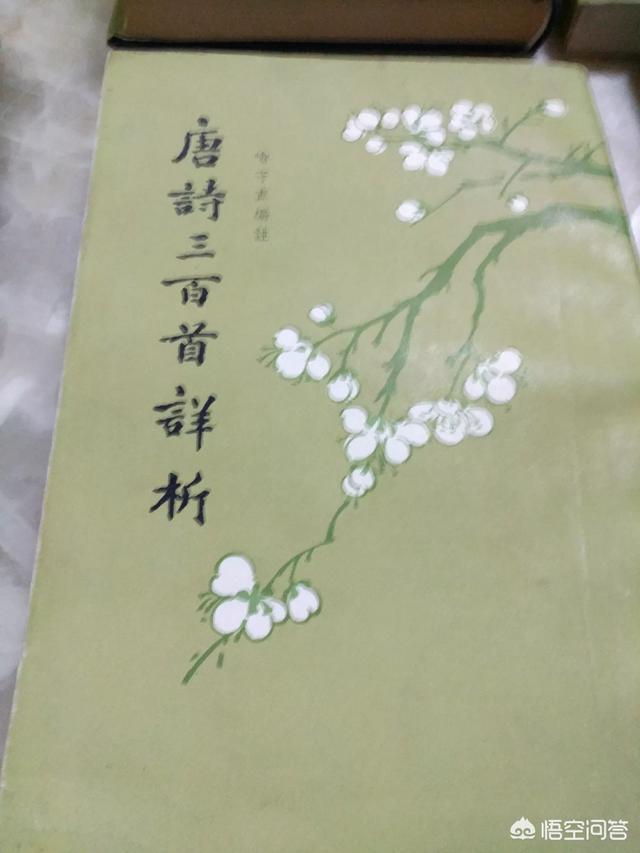 唐詩三百首詳析
喻守真編註
悟空问答